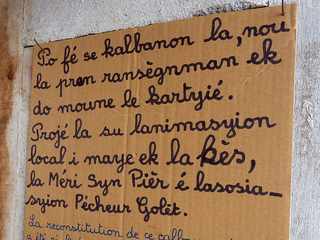 Po fé se kalbanon la, nou
la pren ransègnman ek
do moune le kartyié.
Projé la su lanimasyion
local i maye ek la kès,
la Méri Syn Piér é lasosia-
syion Pècheur Golèt.
La reconstitution de ce calb-